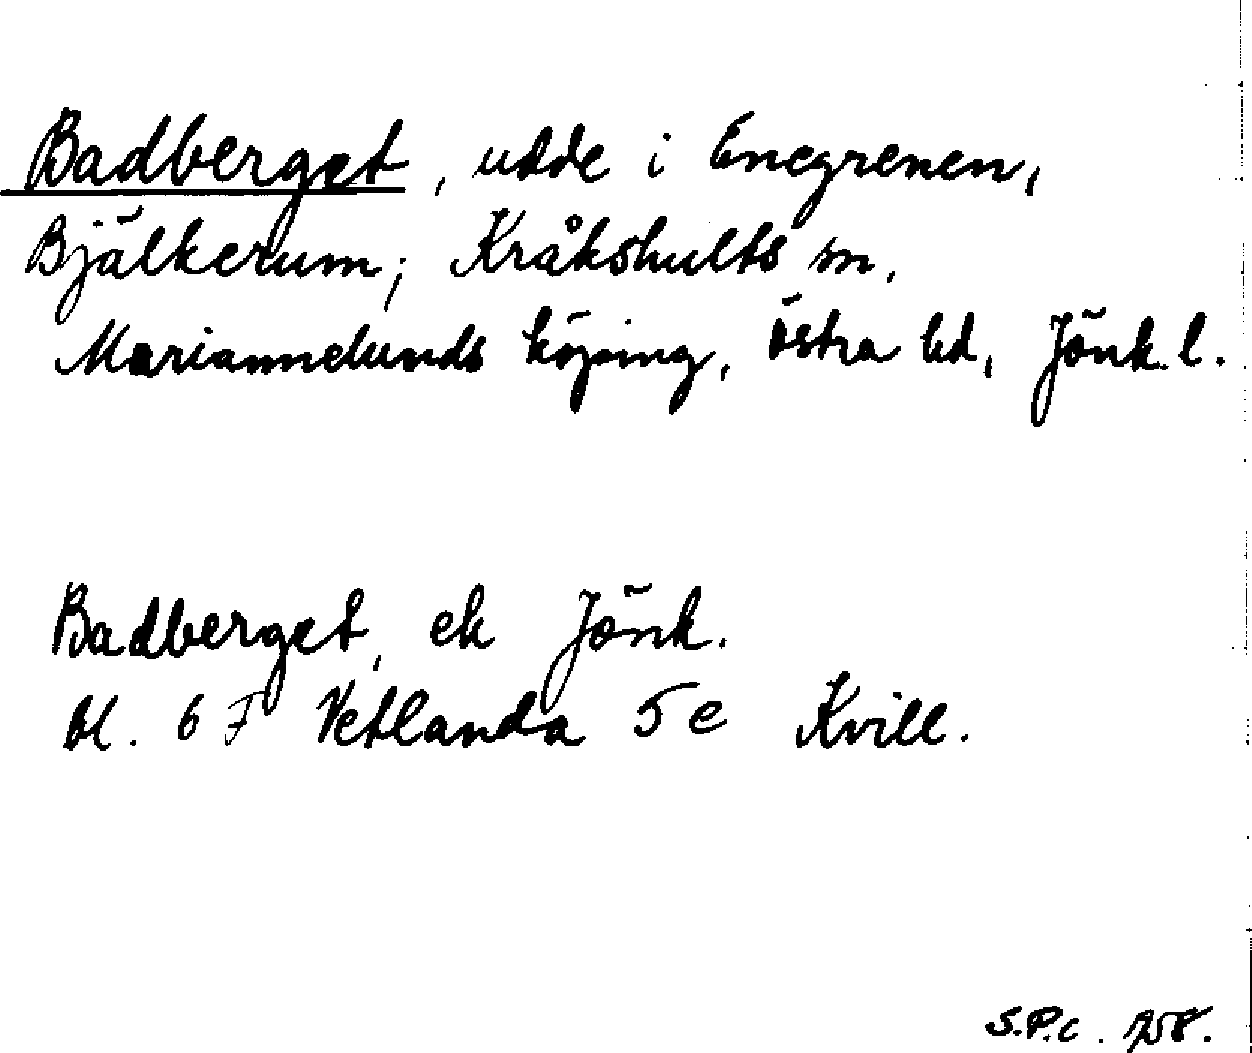 Badberget, udde i Enegrenen,
Bjälkerum; Kråkshults sn,
Mariannelunds köping, Östra hd, Jönk. l.
Badberget, ek Jönk.
bl. 6 F Vetlanda 5 e Kvill.
S.P.C.